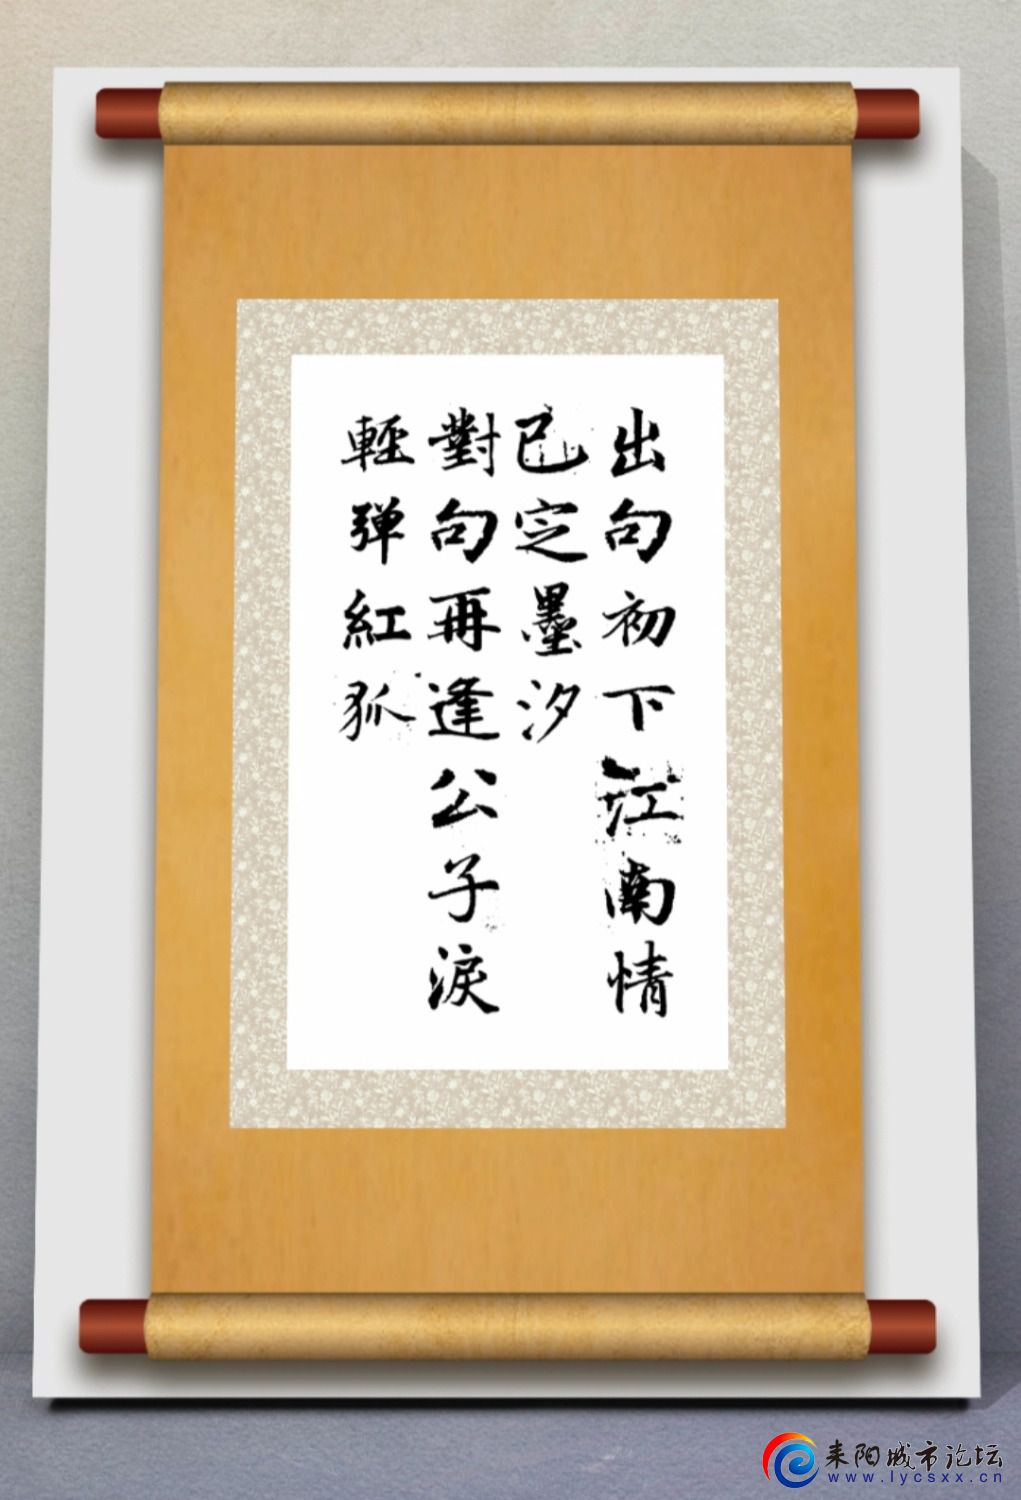 出句初下江南情
已定墨汐
對句再逢公子淚
輕弹紅狐
耒阳城市论坛
www.lycsxx.cn